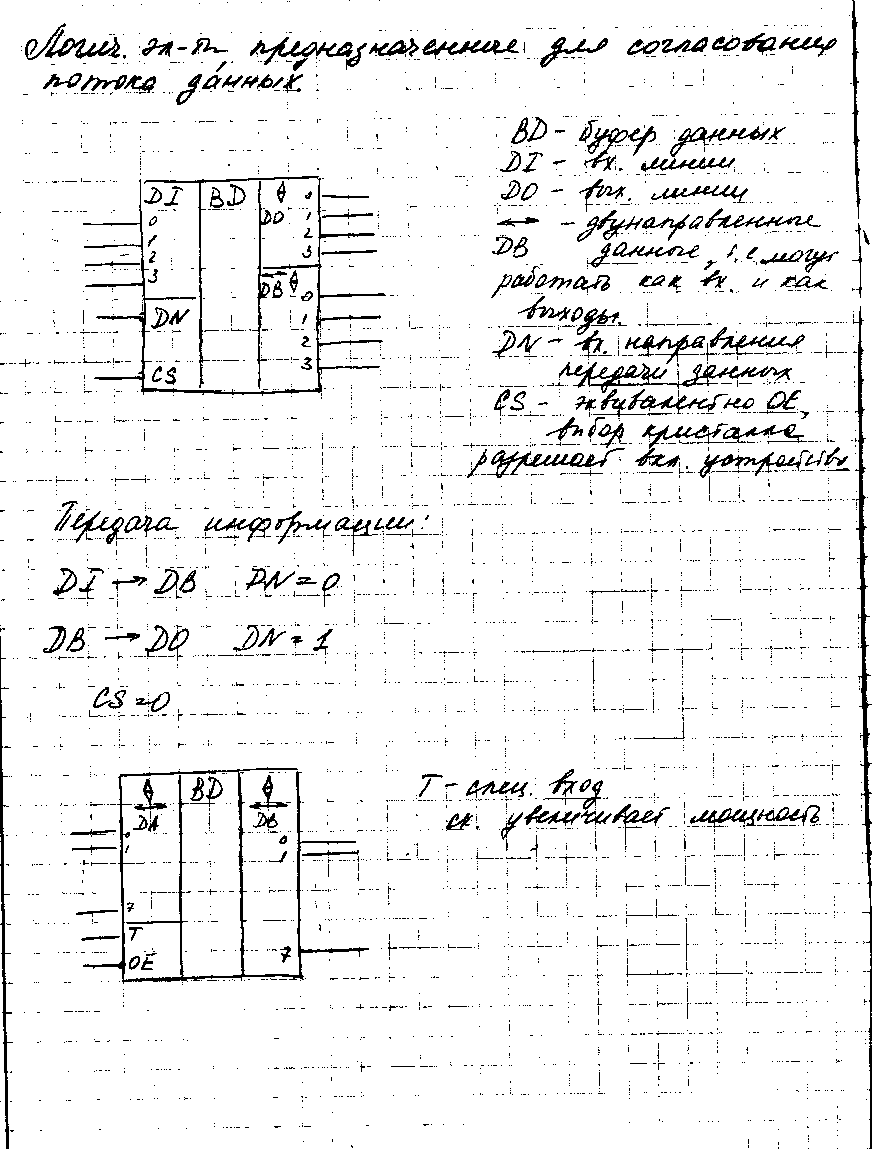 Логич. эл-ты, предназначенные для согласования
потока данных.
DI BD DO
0 1 2 3
0 1 2 3
DB
0 1 2 3
DN
CS
BD – буфер данных
DI – вх. линии
DO – вых. линии
↔ – двунаправленные
DB данные, т.е. могут
работать как вх. и как
выходы.
DN – вх. направления
передачи данных
CS – эквивалентно OE,
выбор кристалла
разрешает вкл. устройства
Передача информации:
DI → DB DN = 0
DB → DO DN = 1
CS = 0
BD
DA DB
0 0
1 1
7
T
OE 7
T – спец. вход
сх. увеличивает мощность